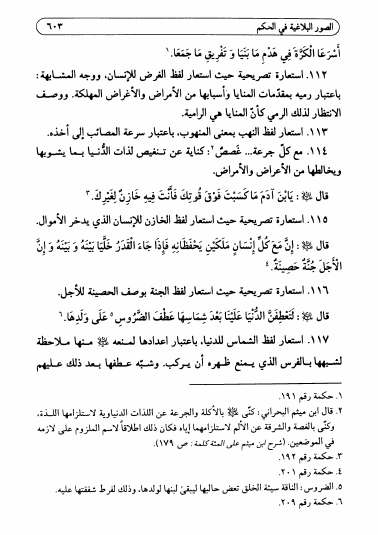 الصور البلاغية في الحكم ٦٠٣
أَسْرَعَا الْكَرَّةَ فِي هَدْمِ مَا بَنَيَا وَ تَفْرِيقِ مَا جَمَعَا.١
١١٢. استعارة تصريحية حيث استعار لفظ الغرض للإنسان، ووجه المشابهة:
باعتبار رميه بمقدّمات المنايا وأسبابها من الأمراض والأغراض المهلكة. ووصف
الانتظار لذلك الرمي كأنّ المنايا هي الرامية.
١١٣. استعار لفظ النهب بمعنى المنهوب، باعتبار سرعة المصائب إلى أخذه.
١١٤. مع كلّ جرعة... غُصصٌ٢: كناية عن تنغيص لذات الدُّنيا بما يشوبها
ويخالطها من الأعراض والأمراض.
قال ﷺ: يَابْنَ آدَمَ مَا كَسَبْتَ فَوْقَ قُوتِكَ فَأَنْتَ فِيهِ خَازِنٌ لِغَيْرِكَ.٣
١١٥. استعارة تصريحية حيث استعار لفظ الخازن للإنسان الذي يدخر الأموال.
قال ﷺ: إِنَّ مَعَ كُلِّ إِنْسَانٍ مَلَكَيْنِ يَحْفَظَانِهِ فَإِذَا جَاءَ الْقَدَرُ خَلَّيَا بَيْنَهُ وَ بَيْنَهُ وَ إِنَّ
الْأَجَلَ جُنَّةٌ حَصِينَةٌ.٤
١١٦. استعارة تصريحية حيث استعار لفظ الجنة بوصف الحصينة للأجل.
قال ﷺ: لَتَعْطِفَنَّ الدُّنْيَا عَلَيْنَا بَعْدَ شِمَاسِهَا عَطْفَ الضَّرُوسِ٥ عَلَى وَلَدِهَا.٦
١١٧. استعار لفظ الشماس للدنيا، باعتبار اعدادها لمنعه ﷺ منها ملاحظة
لشبهها بالفرس الذي يمنع ظهره أن يركب. وشبّه عطفها بعد ذلك عليهم
١. حكمة رقم ١٩١.
٢. قال ابن ميثم البحراني: كنّى ﷺ بالأكلة والجرعة عن اللذات الدنياوية لاستلزامها اللذة،
وكنّى بالغصة والشرقة عن الألم لاستلزامهما إياه فكان ذلك اطلاقاً لاسم الملزوم على لازمه
في الموضعين. (شرح ابن ميثم على المئة كلمة: ص ١٧٩).
٣. حكمة رقم ١٩٢.
٤. حكمة رقم ٢٠١.
٥. الضروس: الناقة سيئة الخلق تعض حالبها ليبقى لبنها لولدها، وذلك لفرط شفقتها عليه.
٦. حكمة رقم ٢٠٩.